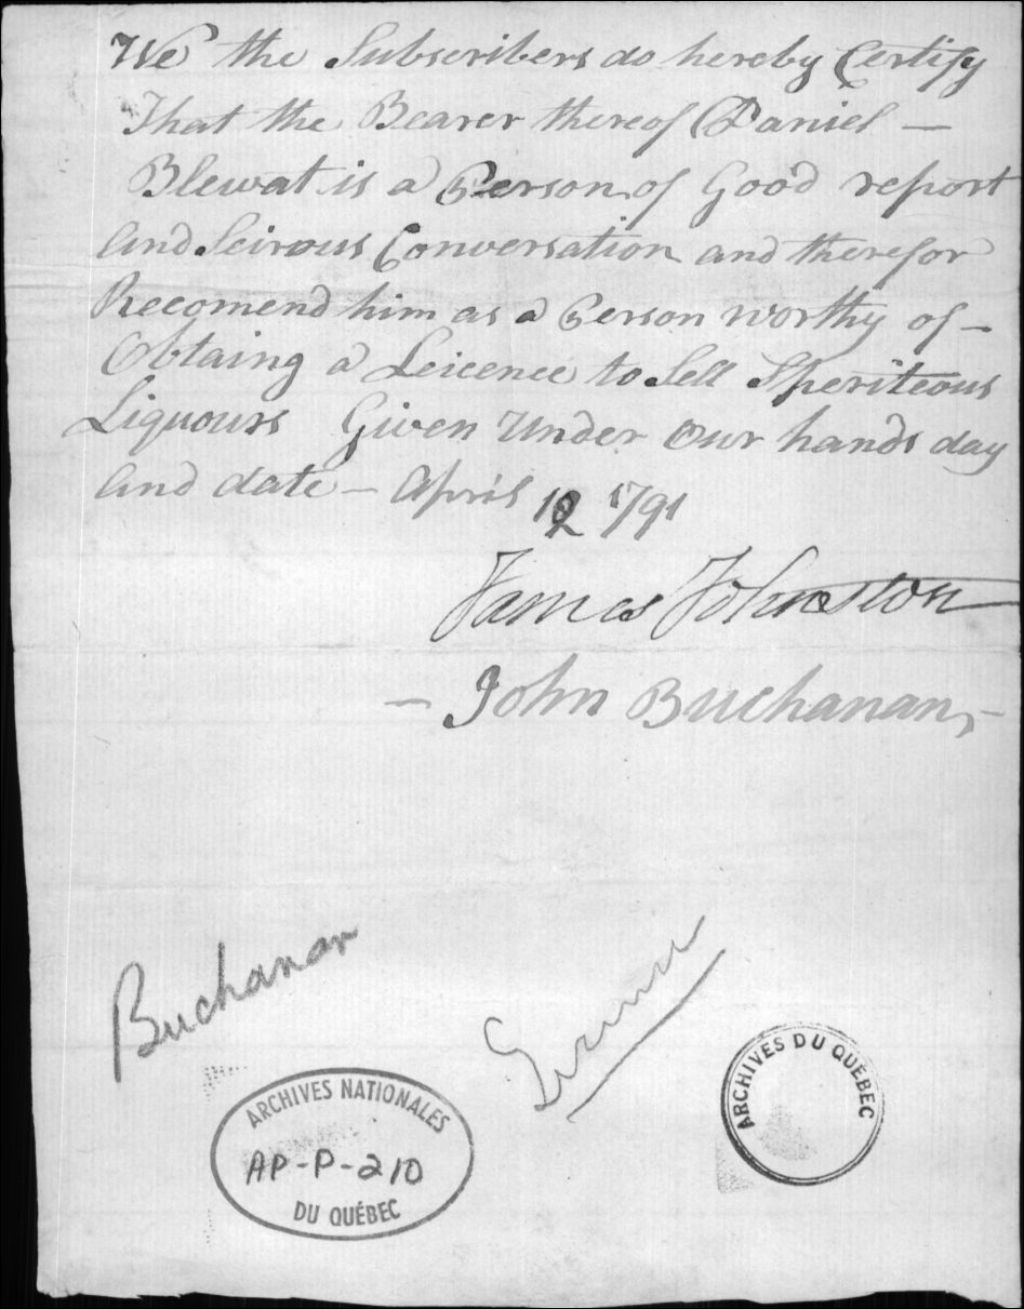 We the Subscribers do hereby Certify
That the Bearer thereof Daniel —
Blewat is a Person of Good report
And Seirous Conversation and therefor
Recomend him as a Person worthy of —
Obtaing a Leicence to Sell Speriteous
Liquours Given Under Our hands day
And date — April 12 1791
James Johnston
— John Buchanan, —
Buchanan
ARCHIVES NATIONALES
AP-P-210
DU QUÉBEC
ARCHIVES DU QUÉBEC